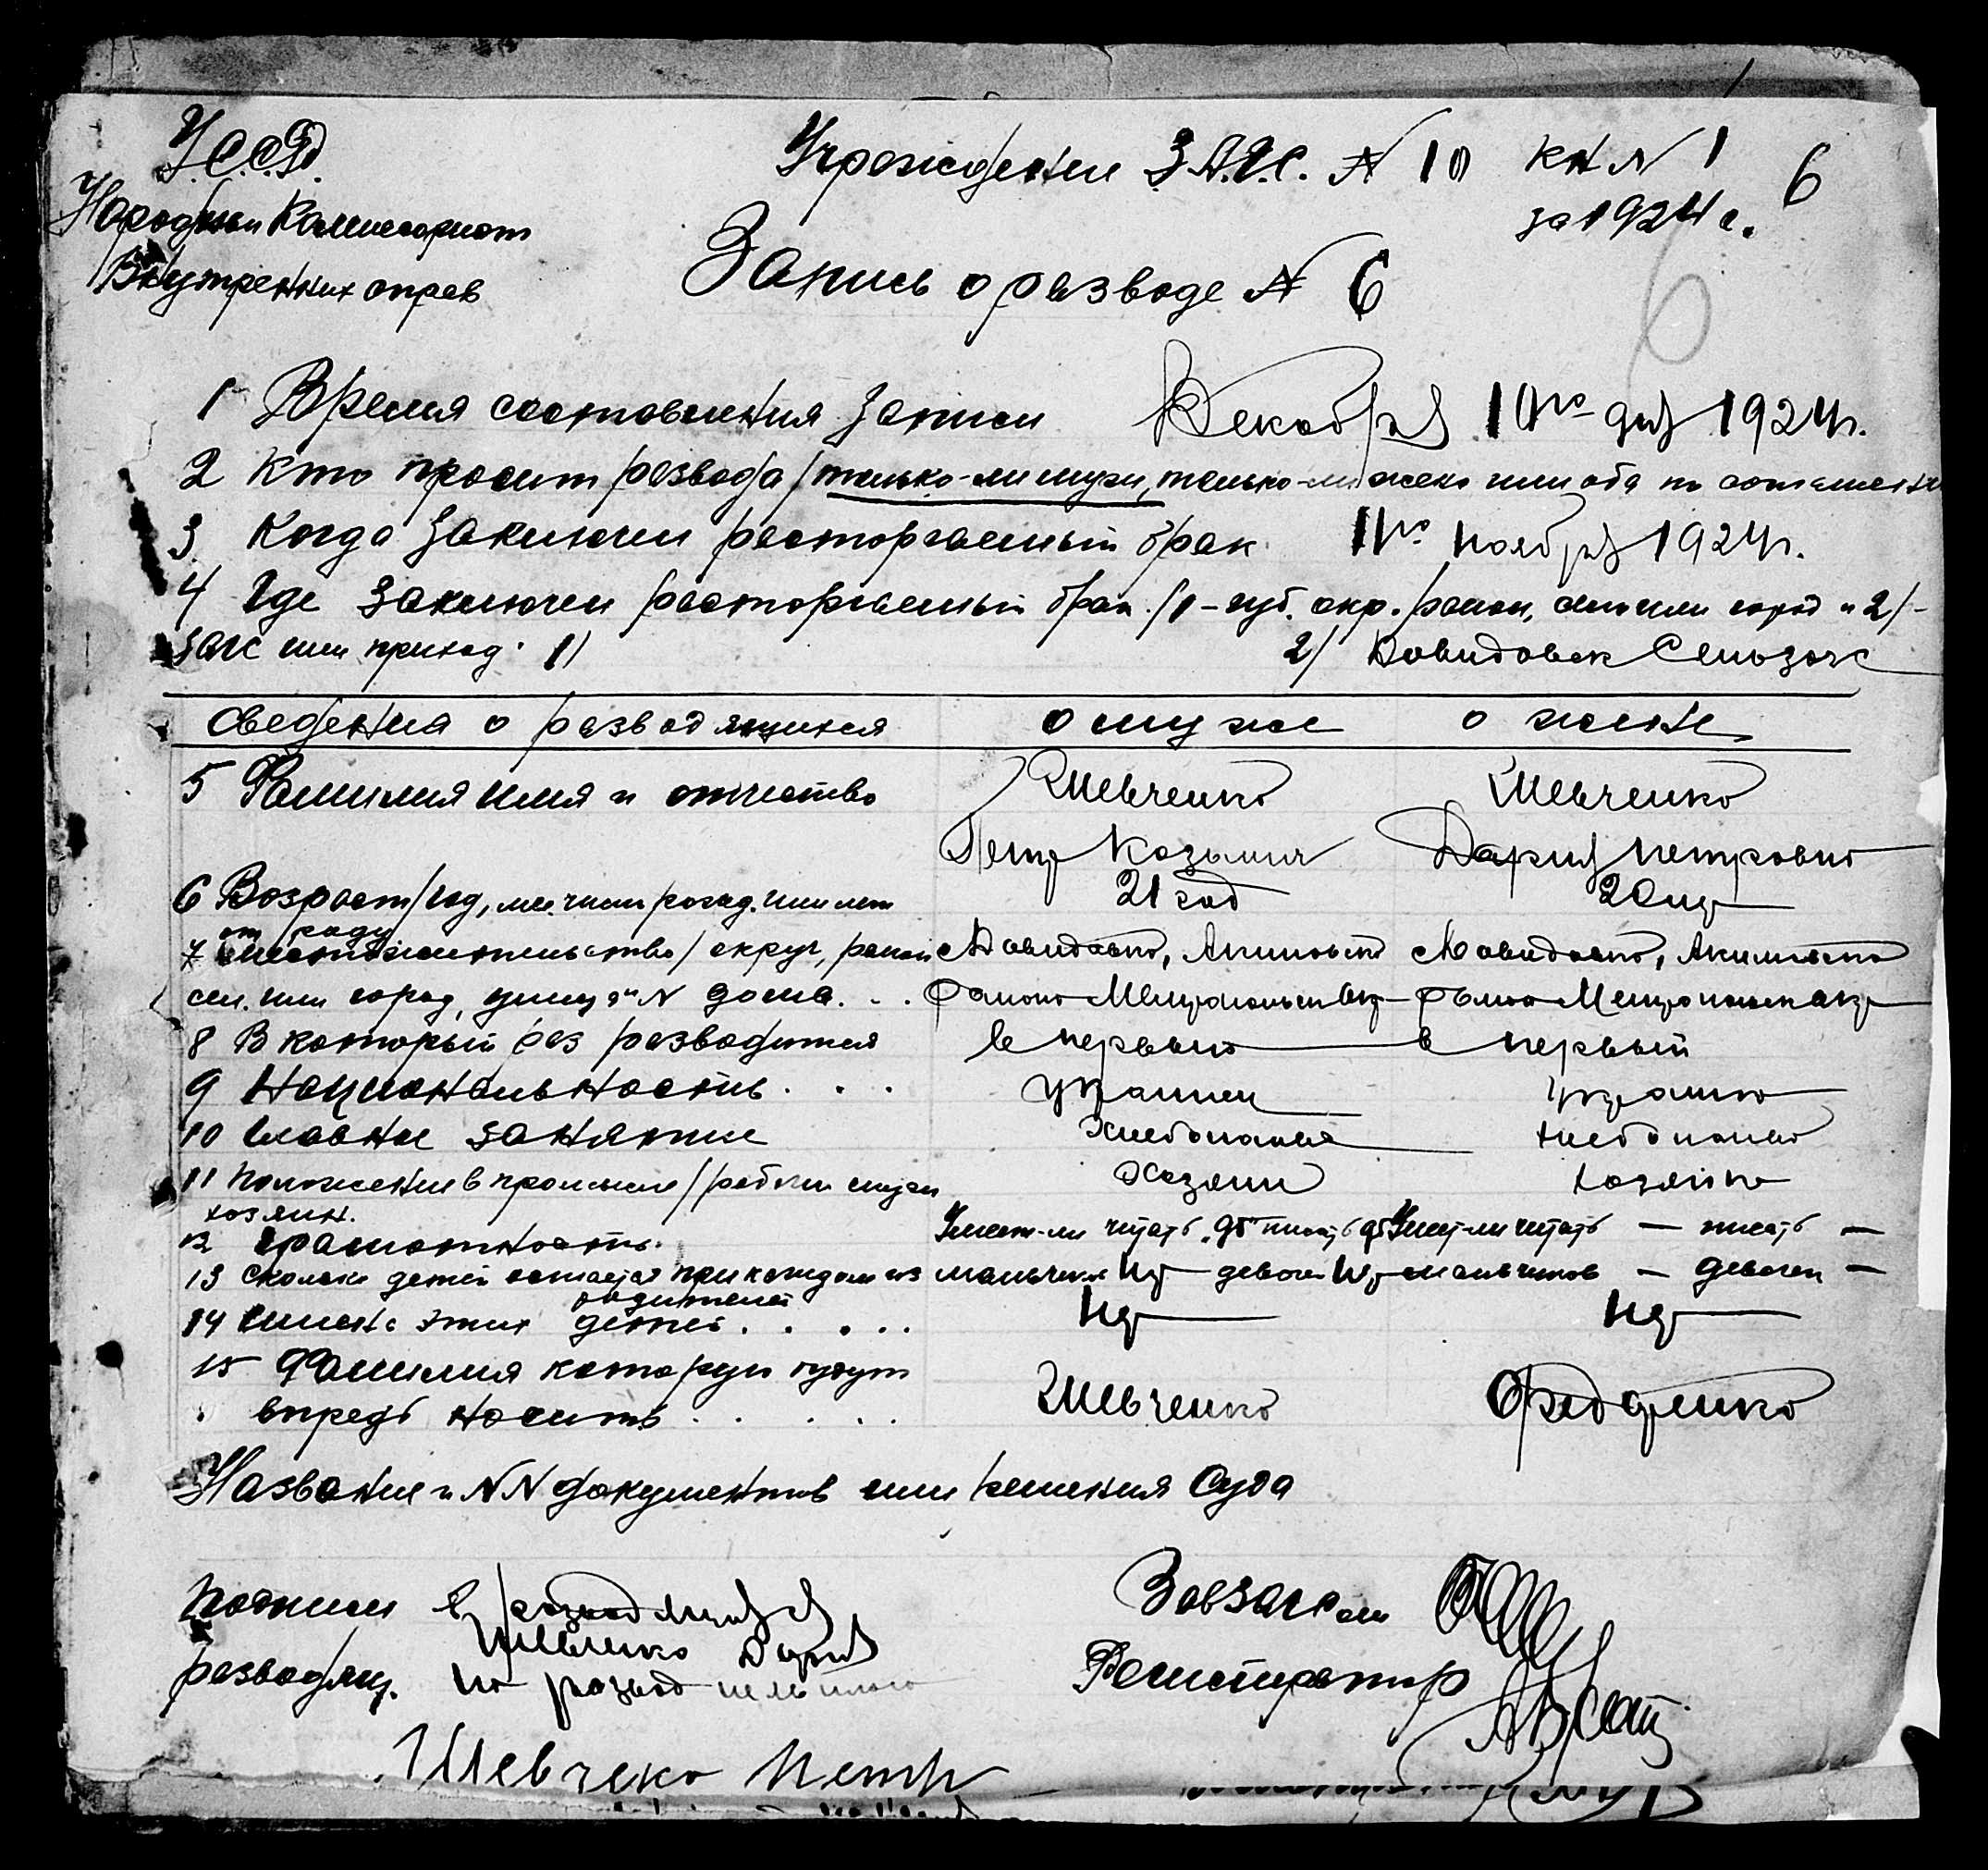 У.С.С.Р.
Учреждение З.А.Г.С. № 10 кн № 1
6
Народный Комиссариат
за 1924 г.
Внутренних справ
Запись о разводе № 6
6
1 Время составления записи Декабря 10го дня 1924 г.
2 Кто просит развода / только-ли муж, только-ли жена или оба по соглашению
3 Когда заключен расторгаемый брак 11го ноября 1924 г.
4 Где заключен расторгаемый брак /1-губ. окр. район, село или город и 2/-
загс или приход. 1) 2/ Давидовск Сельзагс
Сведения о разводящихся о муже о жене
5 Фамилия имя и отчество Шевченко Шевченко
Петр Дария Петровна
6 Возраст /год, мес. число рожд. или лет 21 год 20 лет
от роду
7 Местожительство / округ, район Давидовка, Акимовско Давидовка, Акимовско
сел. или город, улица и № дома. . . района Мелитопольск окр района Мелитопольск окр
8 В который раз разводится в первый в первый
9 Национальность . . . украинец украинка
10 Главное занятие хлебопашец хлебопашество
11 Положение в промысле / рабочий служащ хозяин хозяйка
хозяин.
12 Грамотность. Умеет-ли читать да писать да Умеет-ли читать — писать —
13 Сколько детей остается при каждом из мальчиков нет девочек нет мальчиков — девочек —
родителей
14 Имена этих детей . . . . . нет нет
15 Фамилия которую будут
впредь носить . . . . . Шевченко
Название и NN документов или решения Суда
Подписи Завзагсом
Шевченко Дария
разводящ. на развод Регистратор
Шевчеко Петр